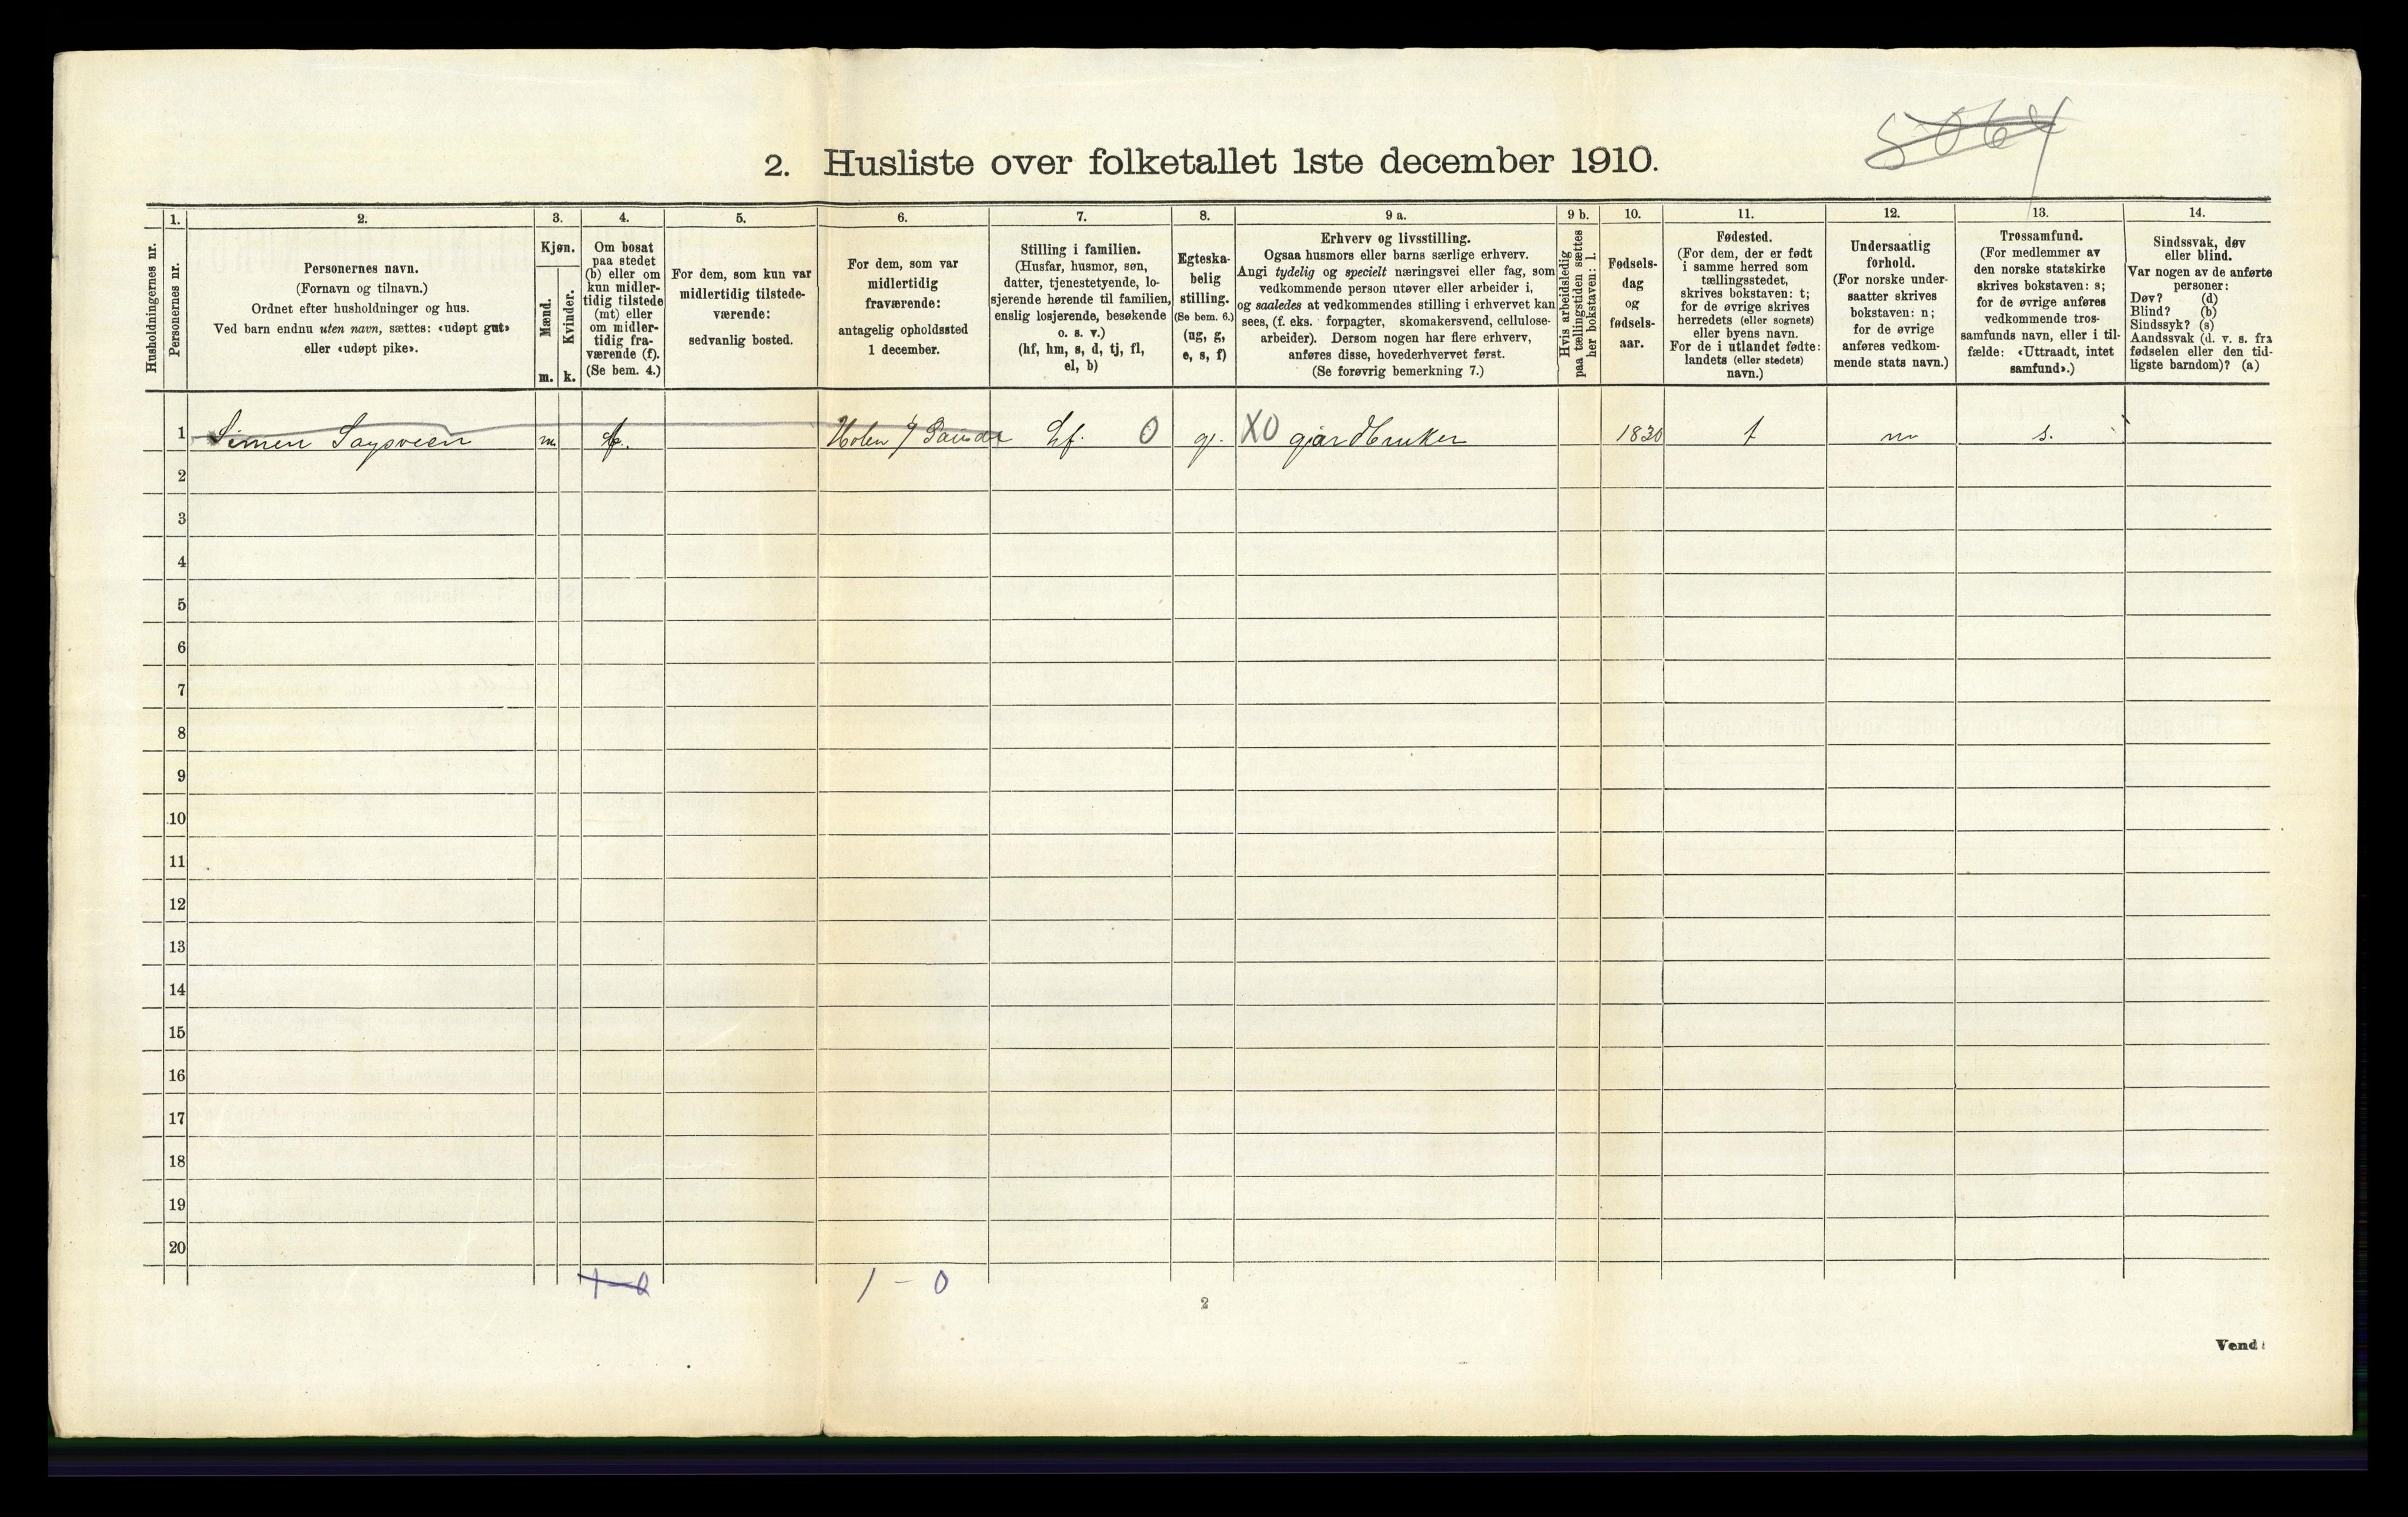 5064
2. Husliste over folketallet 1ste december 1910.
Husholdningernes nr.
1.
Personernes nr.
2.
Personernes navn.
(Fornavn og tilnavn.)
Ordnet efter husholdninger og hus.
Ved barn endnu uten navn, sættes: «udøpt gut»
eller «udøpt pike».
3.
Kjøn.
Mænd.
m.
Kvinder.
k.
4.
Om bosat
paa stedet
(b) eller om
kun midler-
tidig tilstede
(mt) eller
om midler-
tidig fra-
værende (f).
(Se bem. 4.)
5.
For dem, som kun var
midlertidig tilstede-
værende:
sedvanlig bosted.
6.
For dem, som var
midlertidig
fraværende:
antagelig opholdssted
1 december.
7.
Stilling i familien.
(Husfar, husmor, søn,
datter, tjenestetyende, lo-
sjerende hørende til familien,
enslig losjerende, besøkende
o. s. v.)
(hf, hm, s, d, tj, fl,
el, b)
8.
Egteska-
belig
stilling.
(Se bem. 6.)
(ug, g,
e, s, f)
9 a.
Erhverv og livsstilling.
Ogsaa husmors eller barns særlige erhverv.
Angi tydelig og specielt næringsvei eller fag, som
vedkommende person utøver eller arbeider i,
og saaledes at vedkommendes stilling i erhvervet kan
sees, (f. eks. forpagter, skomakersvend, cellulose-
arbeider). Dersom nogen har flere erhverv,
anføres disse, hovederhvervet først.
(Se forøvrig bemerkning 7.)
9 b.
Hvis arbeidsledig
paa tællingstiden sættes
her bokstaven: l.
10.
Fødsels-
dag
og
fødsels-
aar.
11.
Fødested.
(For dem, der er født
i samme herred som
tællingsstedet,
skrives bokstaven: t;
for de øvrige skrives
herredets (eller sognets)
eller byens navn.
For de i utlandet fødte:
landets (eller stedets)
navn.)
12.
Undersaatlig
forhold.
(For norske under-
saatter skrives
bokstaven: n;
for de øvrige
anføres vedkom-
mende stats navn.)
13.
Trossamfund.
(For medlemmer av
den norske statskirke
skrives bokstaven: s;
for de øvrige anføres
vedkommende tros-
samfunds navn, eller i til-
fælde: «Uttraadt, intet
samfund».)
14.
Sindssvak, døv
eller blind.
Var nogen av de anførte
personer:
Døv? (d)
Blind? (b)
Sindssyk? (s)
Aandssvak (d. v. s. fra
fødselen eller den tid-
ligste barndom)? (a)
1 Simen m f. Holen hf. 0 g. X0 gardbruker 1830 t n s.
2
3
4
5
6
7
8
9
10
11
12
13
14
15
16
17
18
19
20
1-0 1 - 0
2
Vend